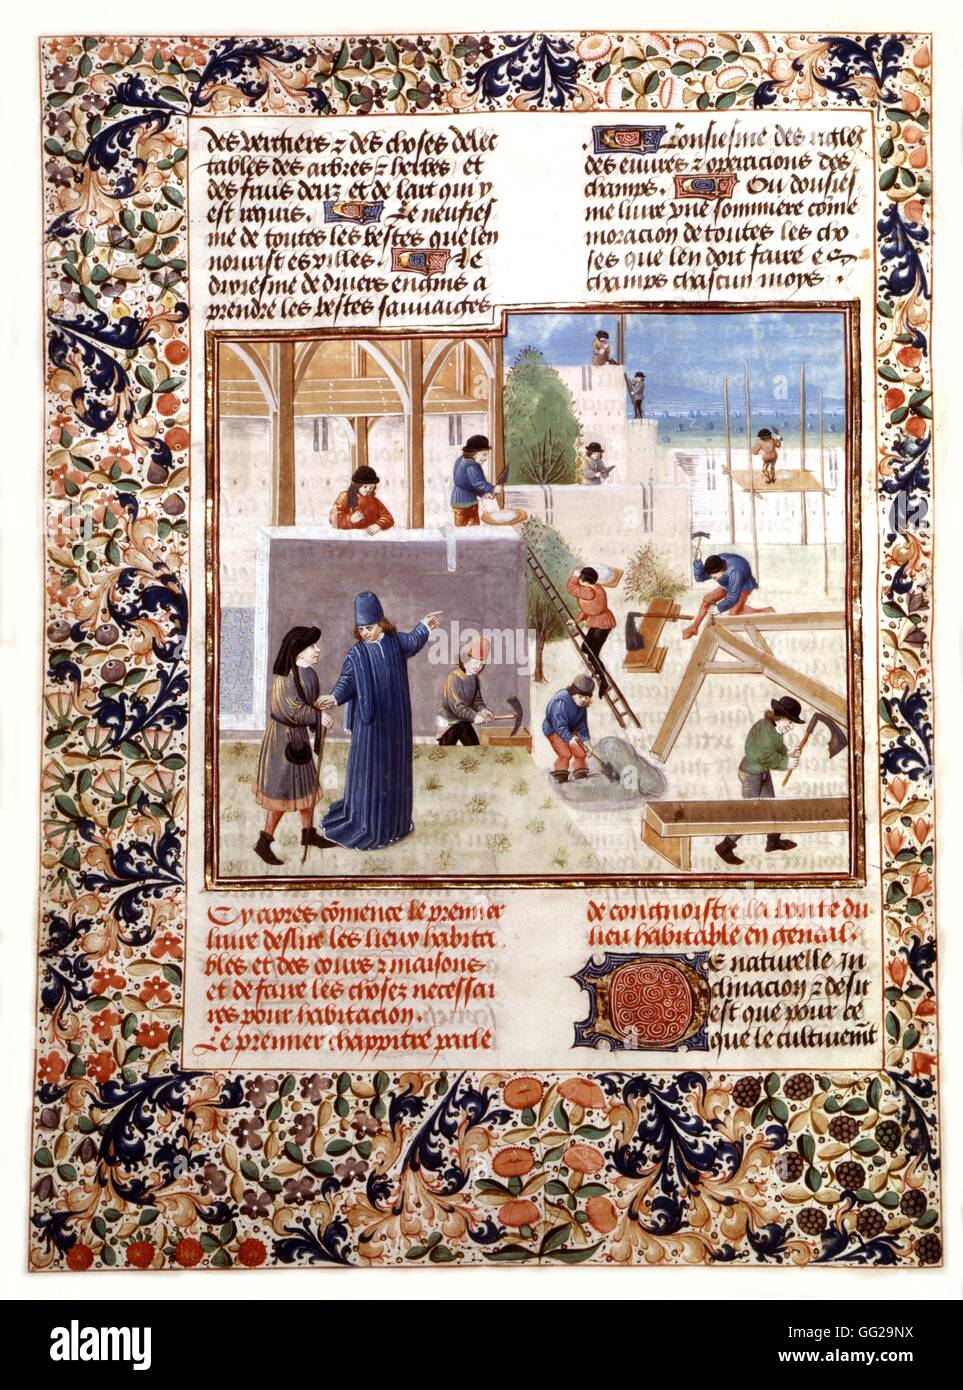 des vergiers & des choses delec
tables des arbres & herbes et
des fruis deulz et de lart qui y
est requis. Le neufies
me de toutes les bestes que len
nourrist es villes. Le
dixiesme de divers engins a
prendre les bestes sauvaiges
Lonsiesme des rigles
des euvres & operacions des
champs. Ou dousies
me livre une sommiere come
moracion de toutes les cho
ses que len doit faire es
champs chascun moys
Cy apres comence le premier
livre desur les lieux habita
bles et des cours & maisons
et de faire les chosez necessai
res pour habitacion.
Le premier chappitre parle
de congnoistre la bonte du
lieu habitable en general.
De naturelle in
clinacion & desir
est que pour ce
que le cultivent
alamy
Image ID: GG29NX
www.alamy.com